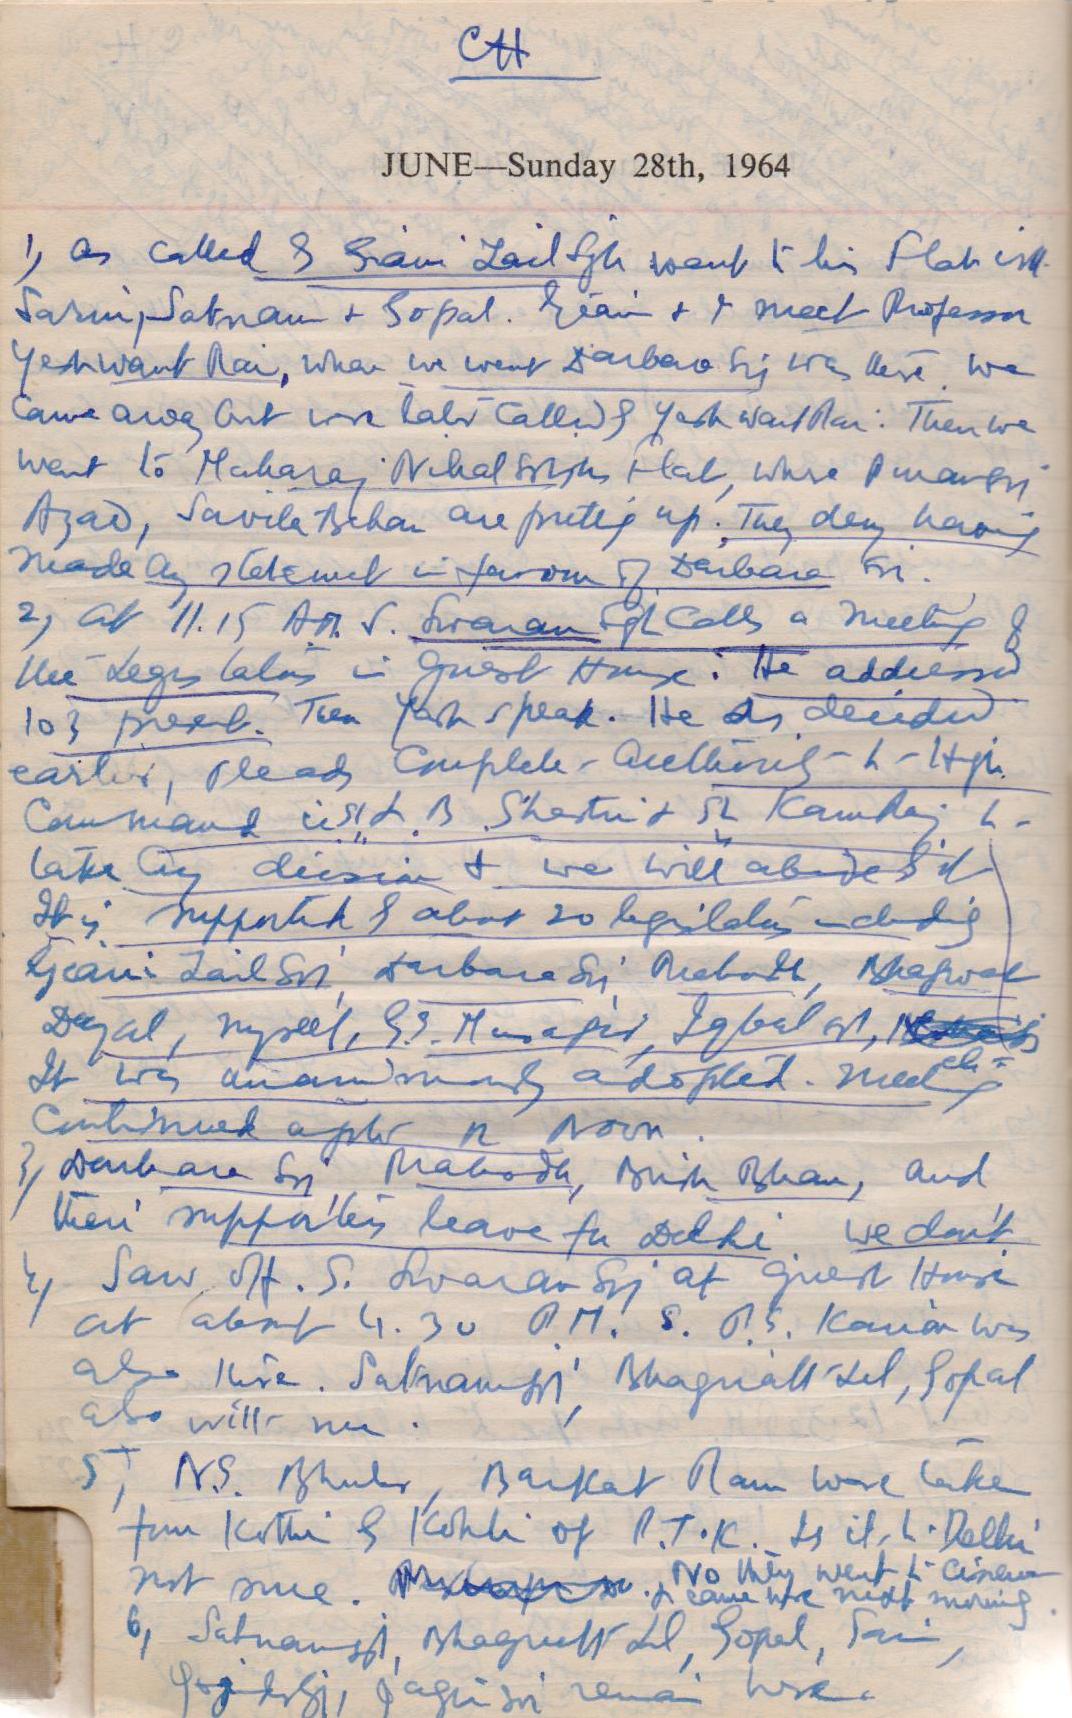 CH
JUNE—Sunday 28th, 1964
1, as called by Giani Zail Sgh went to his Flat with
Sarin, Satnam + Gopal. Giani + I meet Professor
Yeshwant Rai, when we went Darbara Sij was there. We
came away but were later called by Yeshwant Rai. Then we
went to Maharaj Nihal Singhs Flat, where
Azad, Savita Behan are putting up. They deny having
made any statement in favour of Darbara Sri.
2, At 11.15 A.M. S. Swaran Sgh Calls a meeting of
the Legislators in Guest House. He addressed
103 present. Then Yash speak. He as decided
earlier, pleads Complete - Authority - to - High
Command L. B. Shastri + Sh Kamraj to -
take any decision + we will abide by it
It is supported by about 20 legislators including
Giani Zail Sri, Darbara Sri, Prabodh, Bhagwat
Dayal, myself, G.S. Musafir, Iqbal
It was unanimously adopted. Meeting
continued after 12 Noon.
3, Darbara Sri, Prabodh, Brish Bhan, and
their supporters leave for Delhi we don't
4, Saw off. S. Swaran Sij at Guest House
at about 4.30 P.M. S. P.S. Kairon was
also there. Satnam Sri, Bhagnatt Lal, Gopal
also with me.
5, N.S. Bhuler, Barkat Ram were taken
from Kothi by Kohli of P.T.K. Is it to Delhi
not sure. No they went to cinema
+ came here next morning.
6, Satnam Sri, Bhagnatt Lal, Gopal,
remain here.